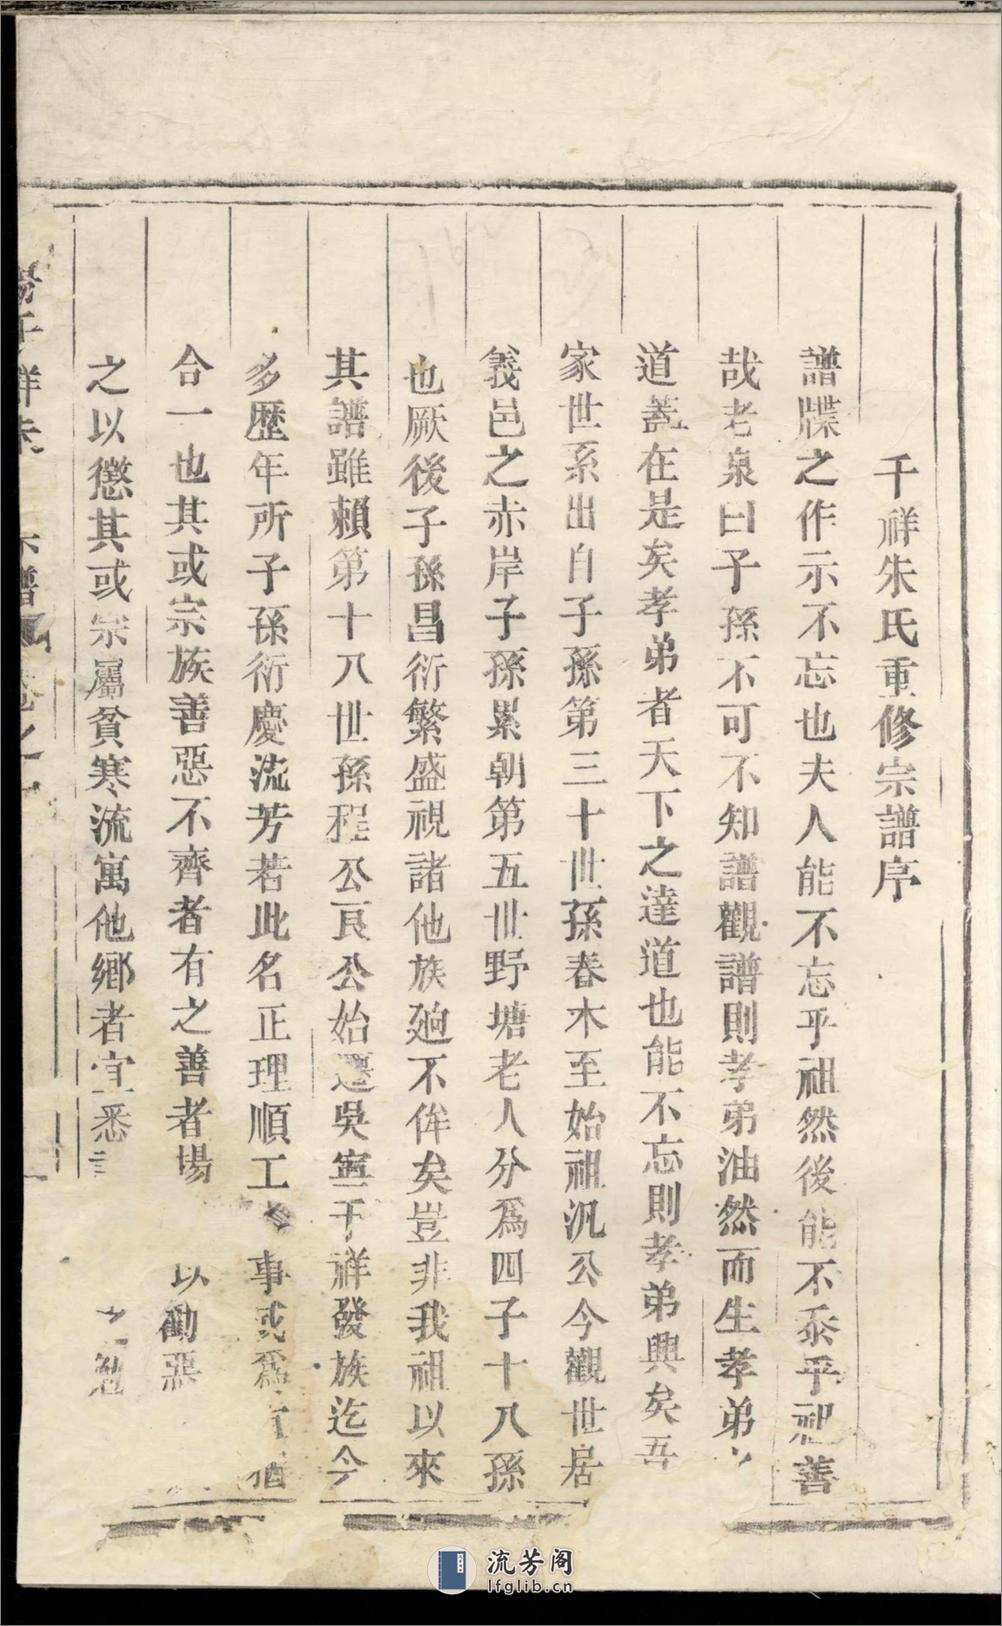 千祥朱氏重修宗譜序
譜牒之作示不忘也夫人能不忘乎祖然後能不忝乎祖善
哉老泉曰子孫不可不知譜觀譜則孝弟油然而生孝弟
道蓋在是矣孝弟者天下之達道也能不忘則孝弟興矣吾
家世系出自子孫第三十世孫春木至始祖汎公今觀世居
義邑之赤岸子孫累朝第五世野塘老人分爲四子十八孫
也厥後子孫昌衍繁盛視諸他族廻不侔矣豈非我祖以來
其譜雖賴第十八世孫程公良公始遷吳寧千祥發族迄今
多歷年所子孫衍慶流芳若此名正理順工事或爲
合一也其或宗族善惡不齊者有之善者場以勸惡
之以懲其或宗屬貧寒流寓他鄉者宜悉
千祥朱 譜 卷之
流芳阁
lfglib.cn